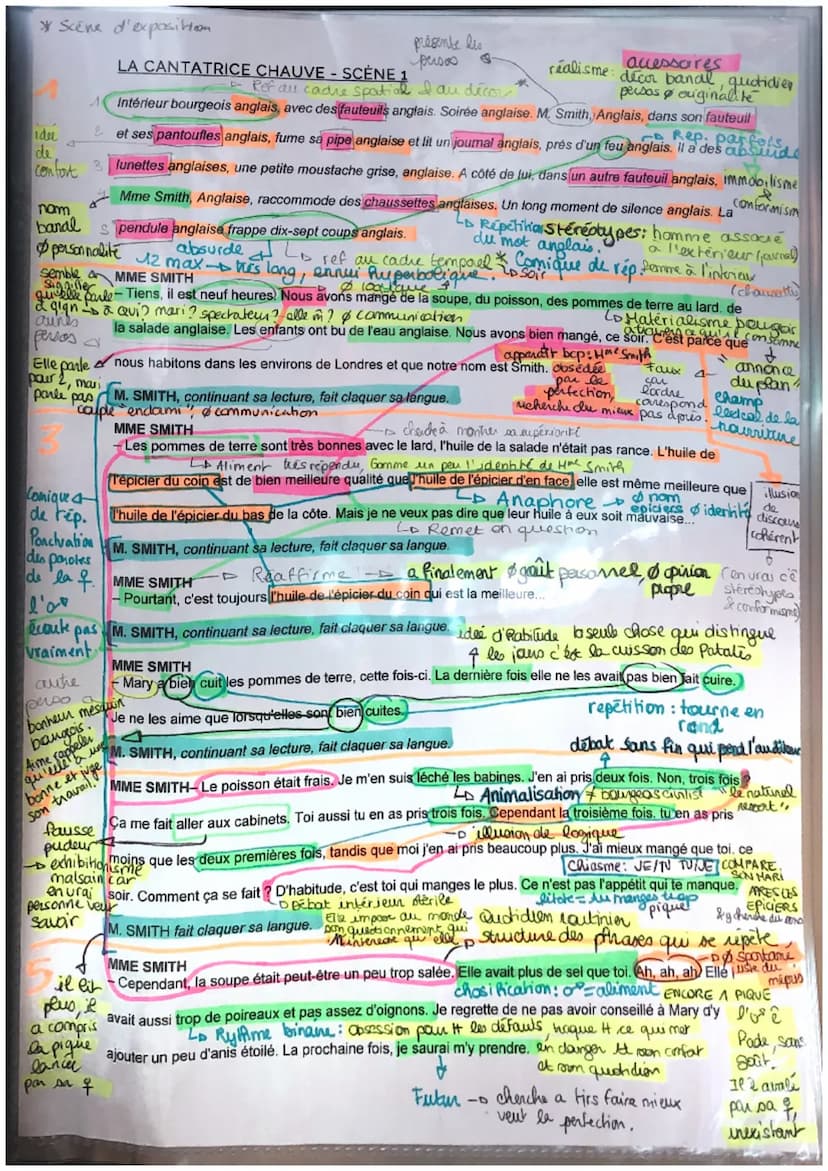 * Scène d'exposition
présente les
persos
LA CANTATRICE CHAUVE - SCÈNE 1
accessoires
réalisme: décor banal, quotidien
persos Ø originalité
Ref au cadre spatial & au décor
1 Intérieur bourgeois anglais, avec des fauteuils anglais. Soirée anglaise. M. Smith, Anglais, dans son fauteuil
Rep. parfois
absurde
idée
de
confort
2 et ses pantoufles anglais, fume sa pipe anglaise et lit un journal anglais, près d'un feu anglais. Il a des
3 lunettes anglaises, une petite moustache grise, anglaise. A côté de lui, dans un autre fauteuil anglais,
immobilisme
conformism
4 Mme Smith, Anglaise, raccommode des chaussettes anglaises. Un long moment de silence anglais. La
nom
banal
Ø personnalité
5 pendule anglaise frappe dix-sept coups anglais.
Répétition
du mot anglais.
Stéréotypes: homme associé
à l'extérieur (journal)
femme à l'intérieur
(chaussette)
absurde
ref au cadre temporel * Comique de rép.
soir
12 max → très long, ennui hyperbolique.
MME SMITH
Ø logique
semble
signifier
qu'elle parle
à qlqn → à qui? mari? spectateur? elle m̂? Ø communication
autres
persos
– Tiens, il est neuf heures! Nous avons mangé de la soupe, du poisson, des pommes de terre au lard, de
Matérialisme bourgois
la salade anglaise. Les enfants ont bu de l'eau anglaise. Nous avons bien mangé, ce soir. C'est parce que
Elle parle
pour 2, mari
parle pas
nous habitons dans les environs de Londres et que notre nom est Smith.
apparaît bcp: Mme Smith
obsédée
par la
perfection,
recherche du mieux
Faux
car
l'ordre
correspond
pas après.
"annonce
du plan"
champ
lexical de la
nourriture
M. SMITH, continuant sa lecture, fait claquer sa langue.
couple "endormi", Ø communication
3
MME SMITH
cherche à montrer sa supériorité
– Les pommes de terre sont très bonnes avec le lard, l'huile de la salade n'était pas rance. L'huile de
Aliment très répendu, comme un peu l'identité de Mme Smith
l'épicier du coin est de bien meilleure qualité que l'huile de l'épicier d'en face, elle est même meilleure que
Anaphore → Ø nom
épiciers Ø identité
illusion
de
discours
cohérent
(en vrai c'ê
stéréotypes
& conformisme)
l'huile de l'épicier du bas de la côte. Mais je ne veux pas dire que leur huile à eux soit mauvaise...
Remet en question
Comique
de rép.
Ponctuation
des paroles
de la ♀.
l'♂
écoute pas
vraiment
M. SMITH, continuant sa lecture, fait claquer sa langue.
MME SMITH
Réaffirme! → a finalement Ø goût personnel, Ø opinion
propre
– Pourtant, c'est toujours l'huile de l'épicier du coin qui est la meilleure...
M. SMITH, continuant sa lecture, fait claquer sa langue.
idée d'habitude la seule chose qui distingue
les jours c'est la cuisson des Patates
MME SMITH
– Mary a bien cuit les pommes de terre, cette fois-ci. La dernière fois elle ne les avait pas bien fait cuire.
Je ne les aime que lorsqu'elles sont bien cuites.
répétition : tourne en
rond
autre
perso
bonheur mesquin
bourgois.
Aime rappeler
qu'elle a une
bonne et juge
son travail.
M. SMITH, continuant sa lecture, fait claquer sa langue.
débat sans fin qui perd l'auditeur
MME SMITH– Le poisson était frais. Je m'en suis léché les babines. J'en ai pris deux fois. Non, trois fois ?
Animalisation ≠ bourgeoisie
"le naturel
ressort"
Ça me fait aller aux cabinets. Toi aussi tu en as pris trois fois. Cependant la troisième fois, tu en as pris
illusion de logique
fausse
pudeur
→ exhibitionisme
malsain car
en vrai
personne veut
savoir
moins que les deux premières fois, tandis que moi j'en ai pris beaucoup plus. J'ai mieux mangé que toi. ce
Chiasme: JE/TU TU/JE
COMPARE
SON MARI
APRES LES
EPICIERS
soir. Comment ça se fait ? D'habitude, c'est toi qui manges le plus. Ce n'est pas l'appétit qui te manque.
Débat intérieur stérile
litote = tu manges trop
pique
M. SMITH fait claquer sa langue.
Elle impose au monde
son questionnement qui
n'intéresse qu'elle
Quotidien routinier
structure des phrases qui se répète,
5
MME SMITH
– Cependant, la soupe était peut-être un peu trop salée. Elle avait plus de sel que toi. Ah, ah, ah. Elle
Ø spontané
juste du
mépris
chosification: ♂ = aliment ENCORE 1 PIQUE
il lit
plus, il
a compris
la pique
lancée
par sa ♀
avait aussi trop de poireaux et pas assez d'oignons. Je regrette de ne pas avoir conseillé à Mary d'y
Rythme binaire: obsession pour tt les défauts, traque tt ce qui met
en danger tt son confort
et son quotidien
ajouter un peu d'anis étoilé. La prochaine fois, je saurai m'y prendre.
l'♂ ê
fade, sans
goût.
Il ê avalé
par sa ♀,
inexistant
Futur → cherche a tjrs faire mieux
veut la perfection.